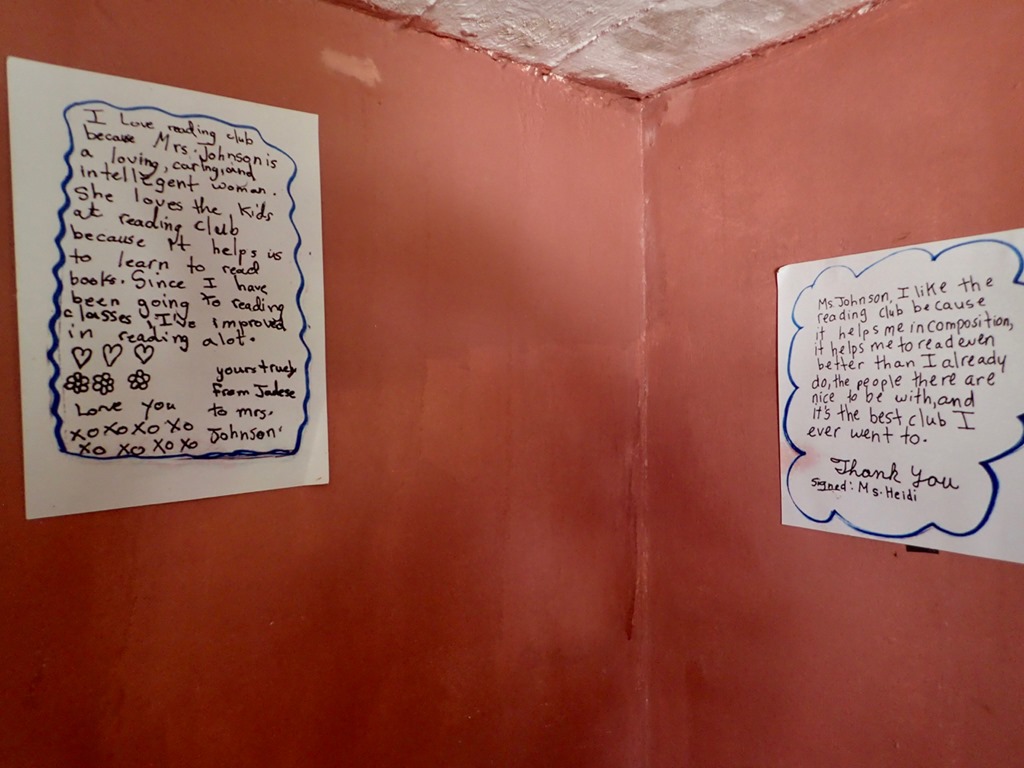 I Love reading club
because Mrs. Johnson is
a loving, caring, and
intellegent woman.
She loves the kids
at reading club
because it helps us
to learn to read
books. Since I have
been going to reading
classes I've improved
in reading alot.
yours truely
From Jadese
Love you
to mrs.
xo xo xo xo
Johnson.
xo xo xo xo
Ms. Johnson, I like the
reading club because
it helps me in composition,
it helps me to read even
better than I already
do, the people there are
nice to be with, and
it's the best club I
ever went to.
Thank You
signed: Ms. Heidi